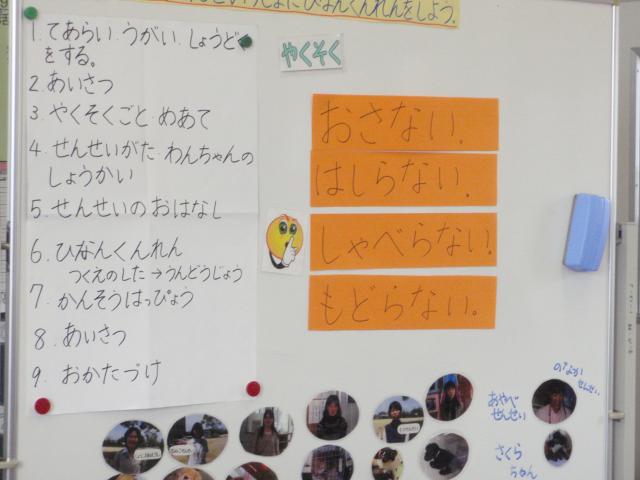 ひなんくんれんをしよう.
1. てあらい. うがい. しょうどく
をする。
2. あいさつ
3. やくそくごと めあて
4. せんせいがた わんちゃんの
しょうかい
5. せんせいのおはなし
6. ひなんくんれん
つくえのした→うんどうじょう
7. かんそうはっぴょう
8. あいさつ
9. おかたづけ
やくそく
おさない.
はしらない.
しゃべらない.
もどらない。
せんせい
おやべ
せんせい
さくら
ちゃん